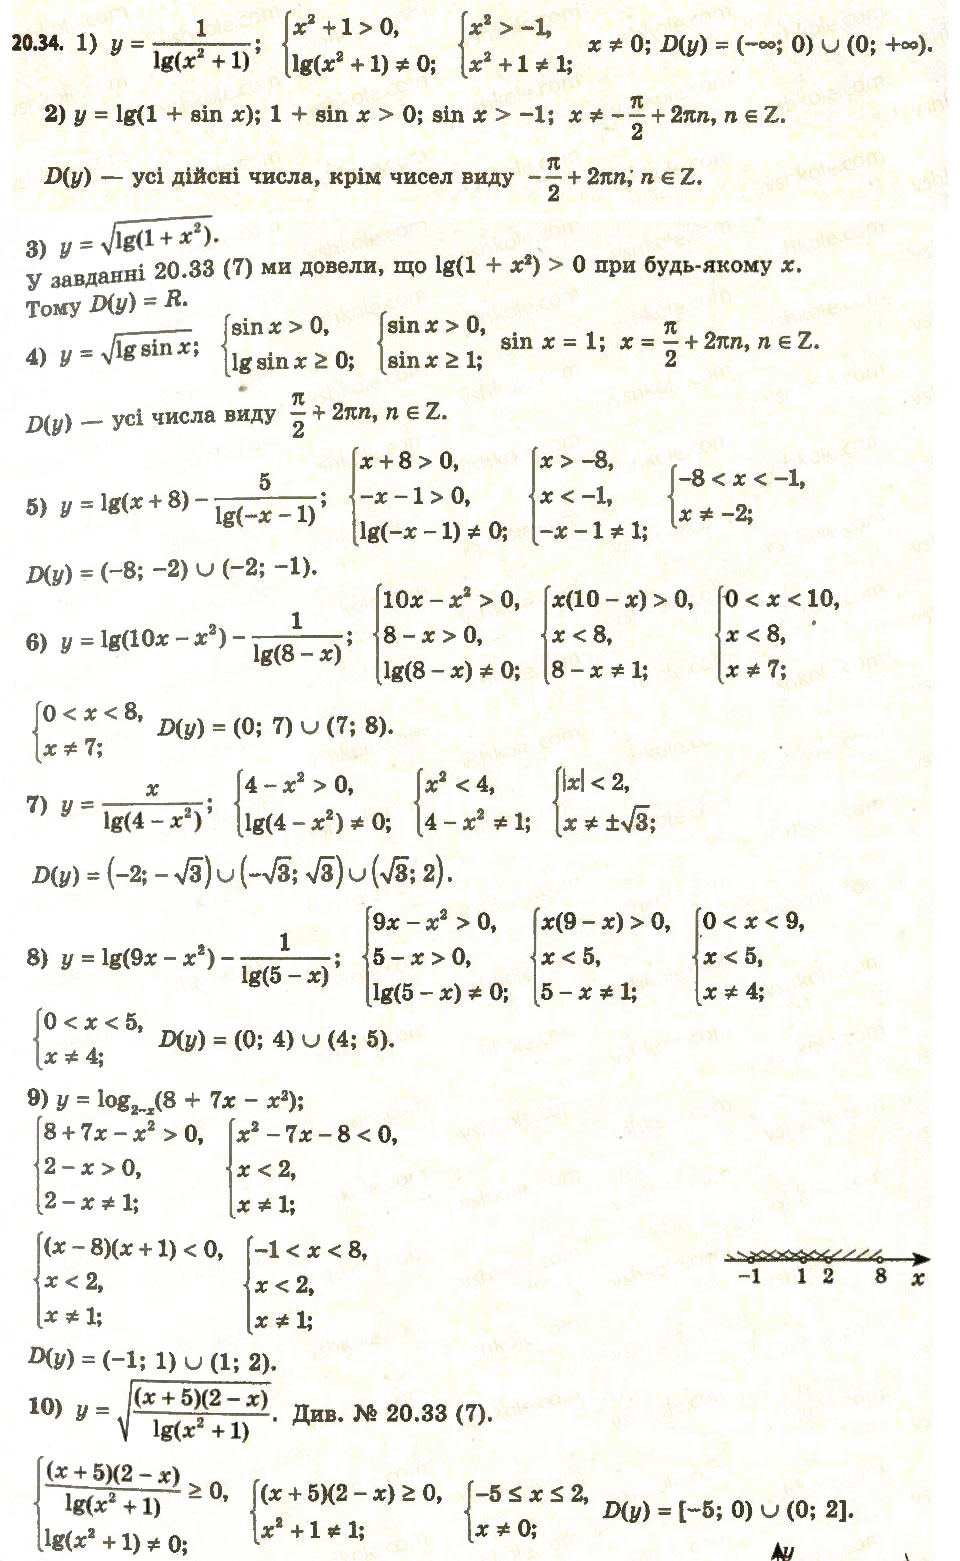 20.34. 1) y = 1/lg(x² + 1); {x² + 1 > 0, lg(x² + 1) ≠ 0; {x² > −1, x² + 1 ≠ 1; x ≠ 0; D(y) = (−∞; 0) ∪ (0; +∞).
2) y = lg(1 + sin x); 1 + sin x > 0; sin x > −1; x ≠ −π/2 + 2πn, n ∈ Z.
D(y) — усі дійсні числа, крім чисел виду −π/2 + 2πn; n ∈ Z.
3) y = √(lg(1 + x²)).
У завданні 20.33 (7) ми довели, що lg(1 + x²) > 0 при будь-якому x.
Тому D(y) = R.
4) y = √(lg sin x); {sin x > 0, lg sin x ≥ 0; {sin x > 0, sin x ≥ 1; sin x = 1; x = π/2 + 2πn, n ∈ Z.
D(y) — усі числа виду π/2 + 2πn, n ∈ Z.
5) y = lg(x + 8) − 5/lg(−x − 1); {x + 8 > 0, −x − 1 > 0, lg(−x − 1) ≠ 0; {x > −8, x < −1, −x − 1 ≠ 1; {−8 < x < −1, x ≠ −2;
D(y) = (−8; −2) ∪ (−2; −1).
6) y = lg(10x − x²) − 1/lg(8 − x); {10x − x² > 0, 8 − x > 0, lg(8 − x) ≠ 0; {x(10 − x) > 0, x < 8, 8 − x ≠ 1; {0 < x < 10, x < 8, x ≠ 7;
{0 < x < 8, x ≠ 7; D(y) = (0; 7) ∪ (7; 8).
7) y = x/lg(4 − x²); {4 − x² > 0, lg(4 − x²) ≠ 0; {x² < 4, 4 − x² ≠ 1; {|x| < 2, x ≠ ±√3;
D(y) = (−2; −√3) ∪ (−√3; √3) ∪ (√3; 2).
8) y = lg(9x − x²) − 1/lg(5 − x); {9x − x² > 0, 5 − x > 0, lg(5 − x) ≠ 0; {x(9 − x) > 0, x < 5, 5 − x ≠ 1; {0 < x < 9, x < 5, x ≠ 4;
{0 < x < 5, x ≠ 4; D(y) = (0; 4) ∪ (4; 5).
9) y = log₂₋ₓ(8 + 7x − x²);
{8 + 7x − x² > 0, 2 − x > 0, 2 − x ≠ 1; {x² − 7x − 8 < 0, x < 2, x ≠ 1;
{(x − 8)(x + 1) < 0, x < 2, x ≠ 1; {−1 < x < 8, x < 2, x ≠ 1;
−1 1 2 8 x
D(y) = (−1; 1) ∪ (1; 2).
10) y = √((x + 5)(2 − x)/lg(x² + 1)). Див. № 20.33 (7).
{(x + 5)(2 − x)/lg(x² + 1) ≥ 0, lg(x² + 1) ≠ 0; {(x + 5)(2 − x) ≥ 0, x² + 1 ≠ 1; {−5 ≤ x ≤ 2, x ≠ 0; D(y) = [−5; 0) ∪ (0; 2].